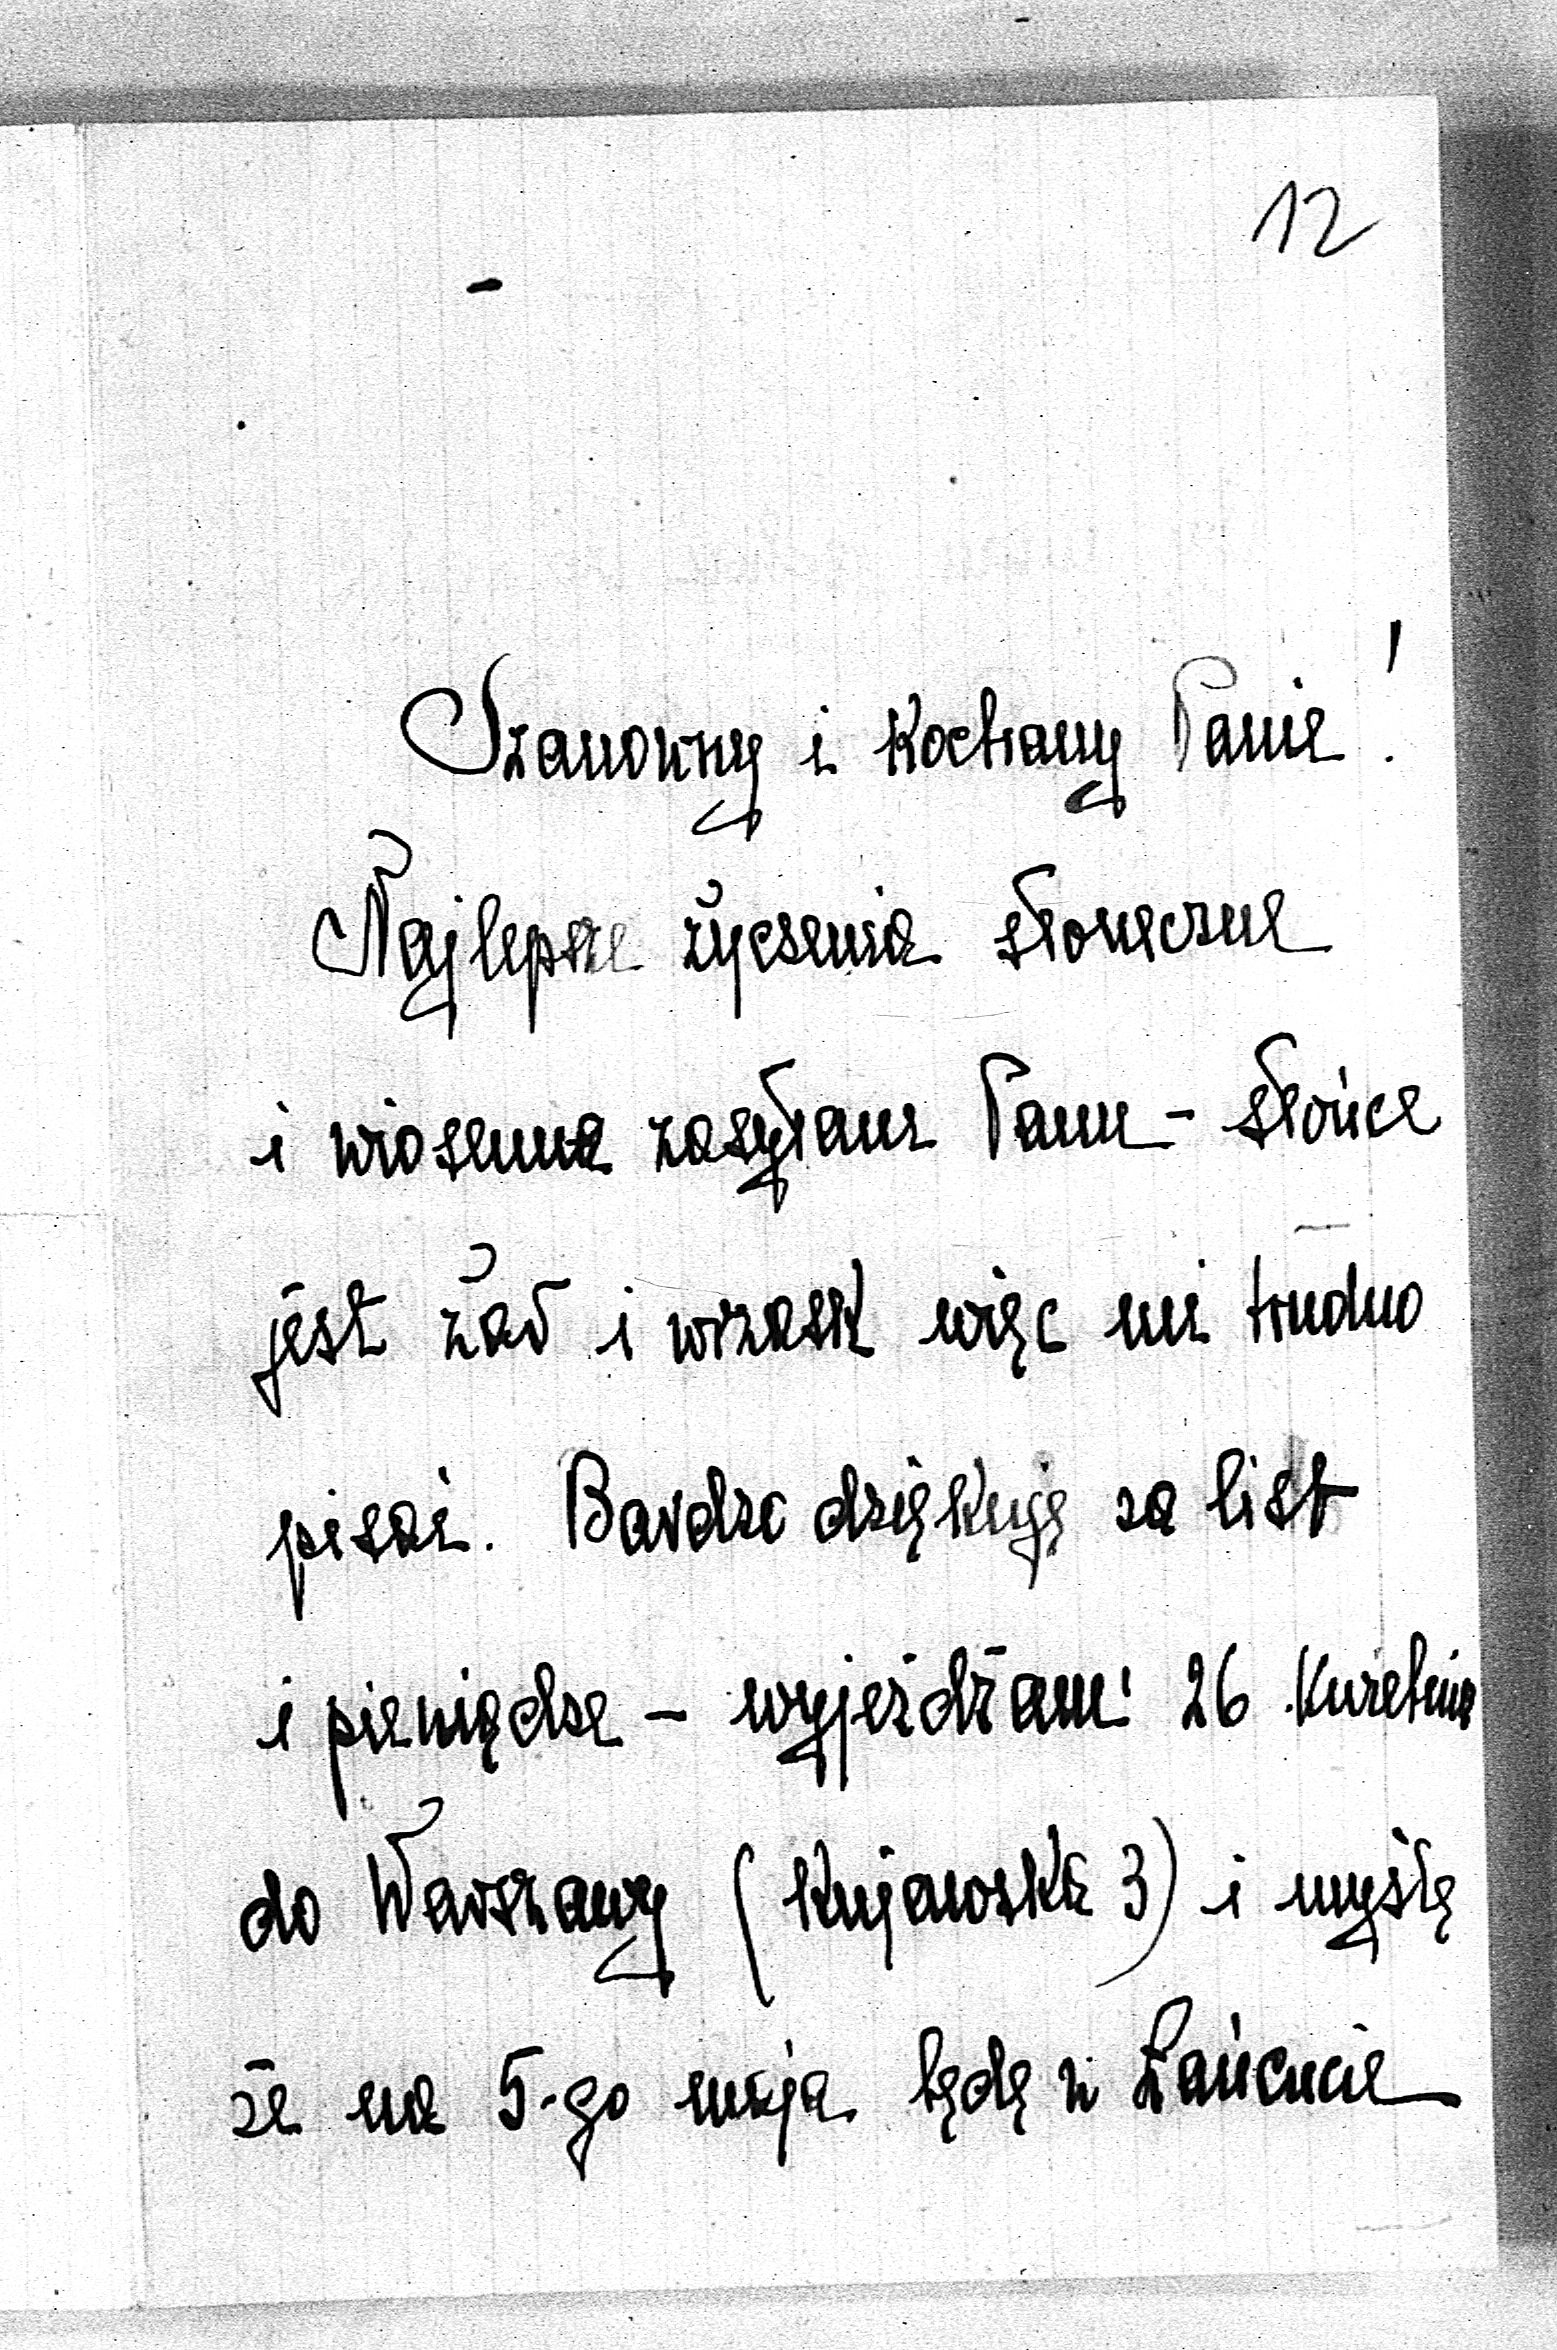 12
Szanowny i Kochany Panie!
Najlepsze życzenia słoneczne
i wiosenne zasyłam Panu - słońce
jest żar i wrzask więc mi trudno
pisać. Bardzo dziękuję za list
i pieniędze - wyjeżdżam 26 kwietnia
do Warszawy (Kujawska 3) i myślę
że na 5-go maja będę w Łańcucie